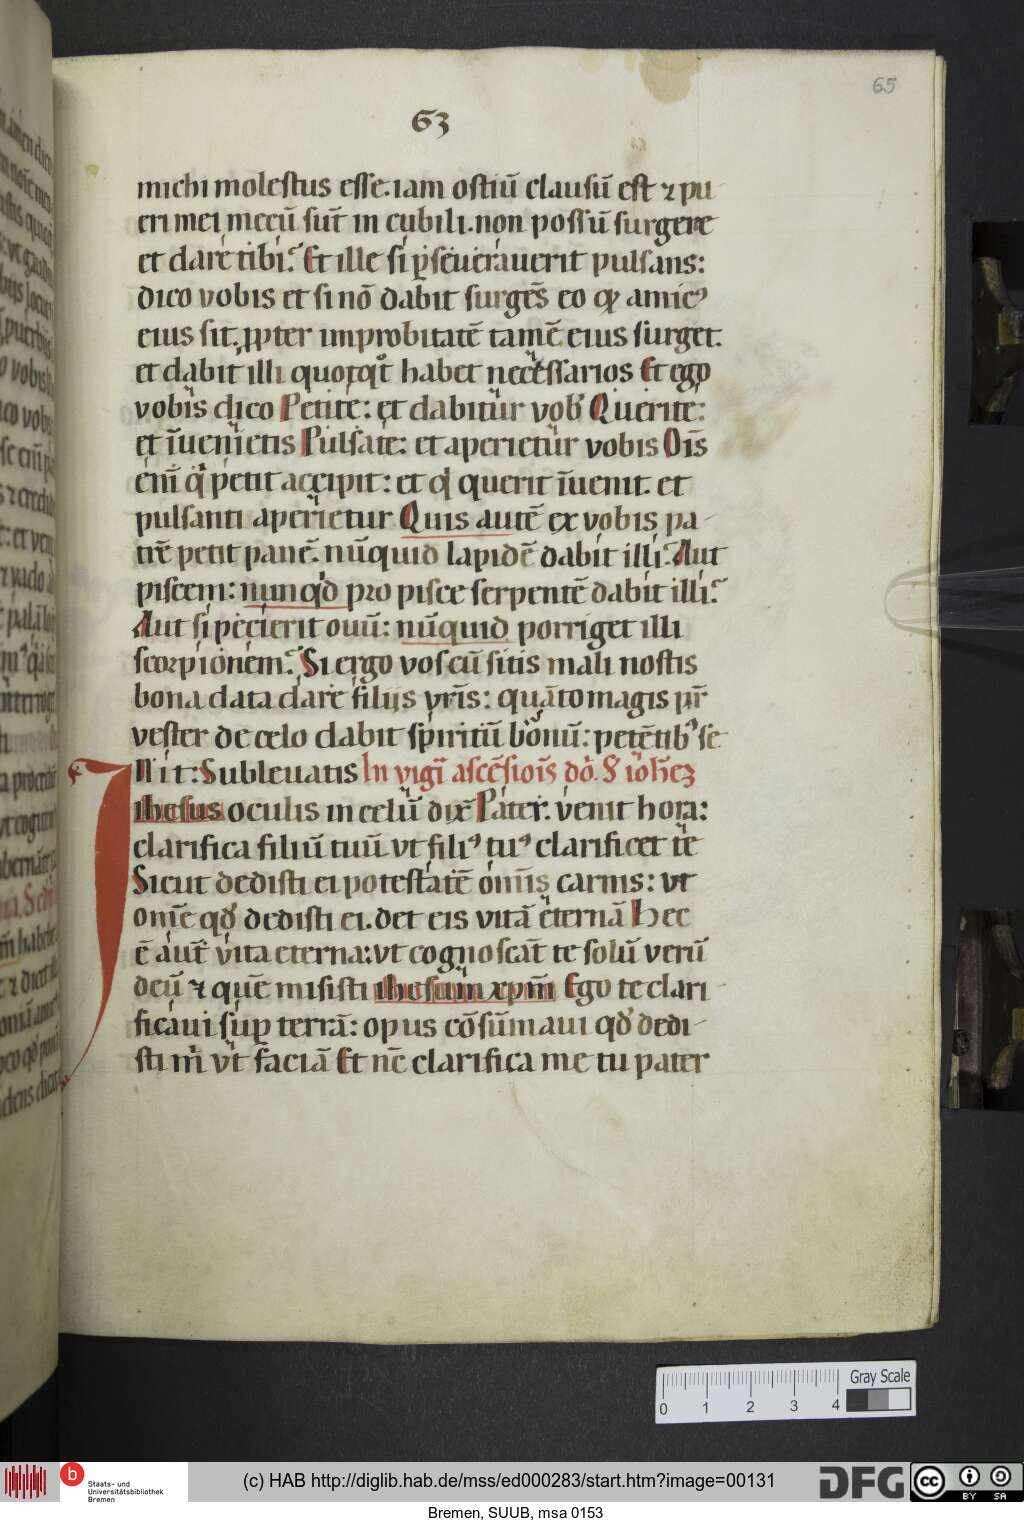 65
63
michi molestus esse. iam ostiū clausū est ⁊ pu-
eri mei mecū sūt in cubili. non possū surgere
et dare tibi. Et ille si ꝑseuerauerit pulsans:
dico vobis et si nō dabit surgēs eo qꝫ amicꝰ
eius sit. ꝓpter improbitatē tamē eius surget.
et dabit illi quotqͦt habet necessarios Et ego
vobis dico Petite: et dabitur vob̵ Querite:
et īuenietis Pulsate: et aperietur vobis Oīs
enī qͥ petit accipit: et qͥ querit īuenit. et
pulsanti aperietur Quis autē ex vobis pa-
trē petit panē. nūquid lapidē dabit illi. Aut
piscem: nunqͥd pro pisce serpentē dabit illi.
Aut si pecierit ouū: nūquid porriget illi
scorpionem. Si ergo vos cū sitis mali nostis
bona data dare filijs vr̄is: quāto magis pr̄
vester de celo dabit spiritū bonū: petētibꝰ se
IN it: Subleuatis In vigī ascēsiois dō. S ioh̄eꝫ
ihesus oculis in celū dix̄ Pater. venit hora:
clarifica filiū tuū vt filiꝰ tuꝰ clarificet te
Sicut dedisti ei potestatē omīs carnis: vt
omē qd̵ dedisti ei. det eis vitā eternā Hec
ē aut̄ vita eterna: vt cognoscāt te solū verū
deū ⁊ quē misisti ihesum xpm̄ Ego te clari-
ficaui suꝑ terrā: opus cōsūmaui qd̵ dedi-
sti mͥ vt faciā Et nc̄ clarifica me tu pater
Gray Scale
0 1 2 3 4
b Staats- und
Universitätsbibliothek
Bremen
(c) HAB http://diglib.hab.de/mss/ed000283/start.htm?image=00131
DFG
cc BY SA
Bremen, SUUB, msa 0153